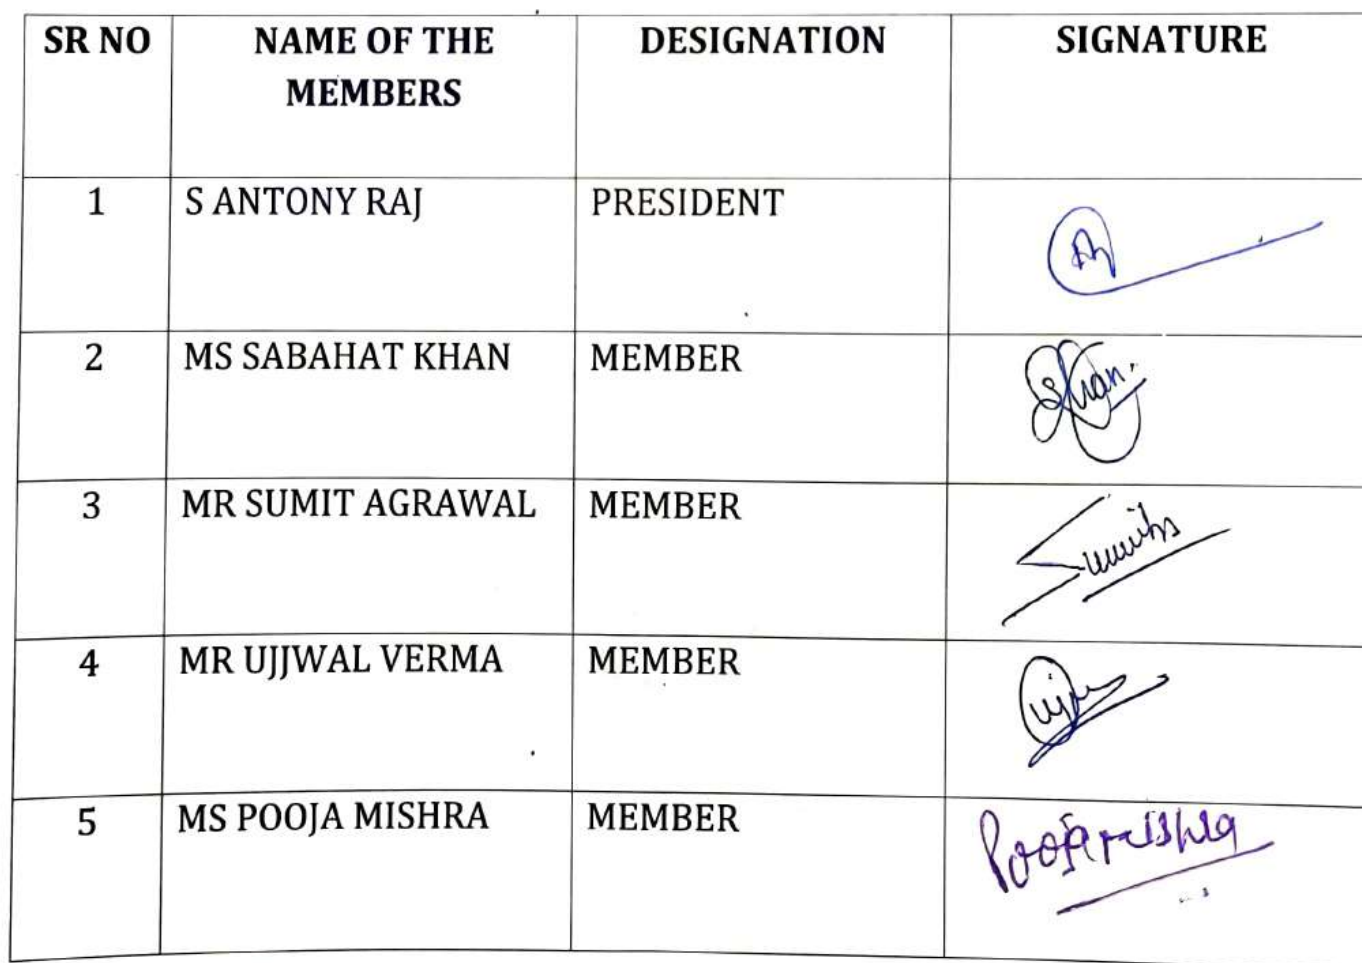 SR NO NAME OF THE MEMBERS DESIGNATION SIGNATURE
1 S ANTONY RAJ PRESIDENT
2 MS SABAHAT KHAN MEMBER SKhan.
3 MR SUMIT AGRAWAL MEMBER
4 MR UJJWAL VERMA MEMBER
5 MS POOJA MISHRA MEMBER Pooja mishra